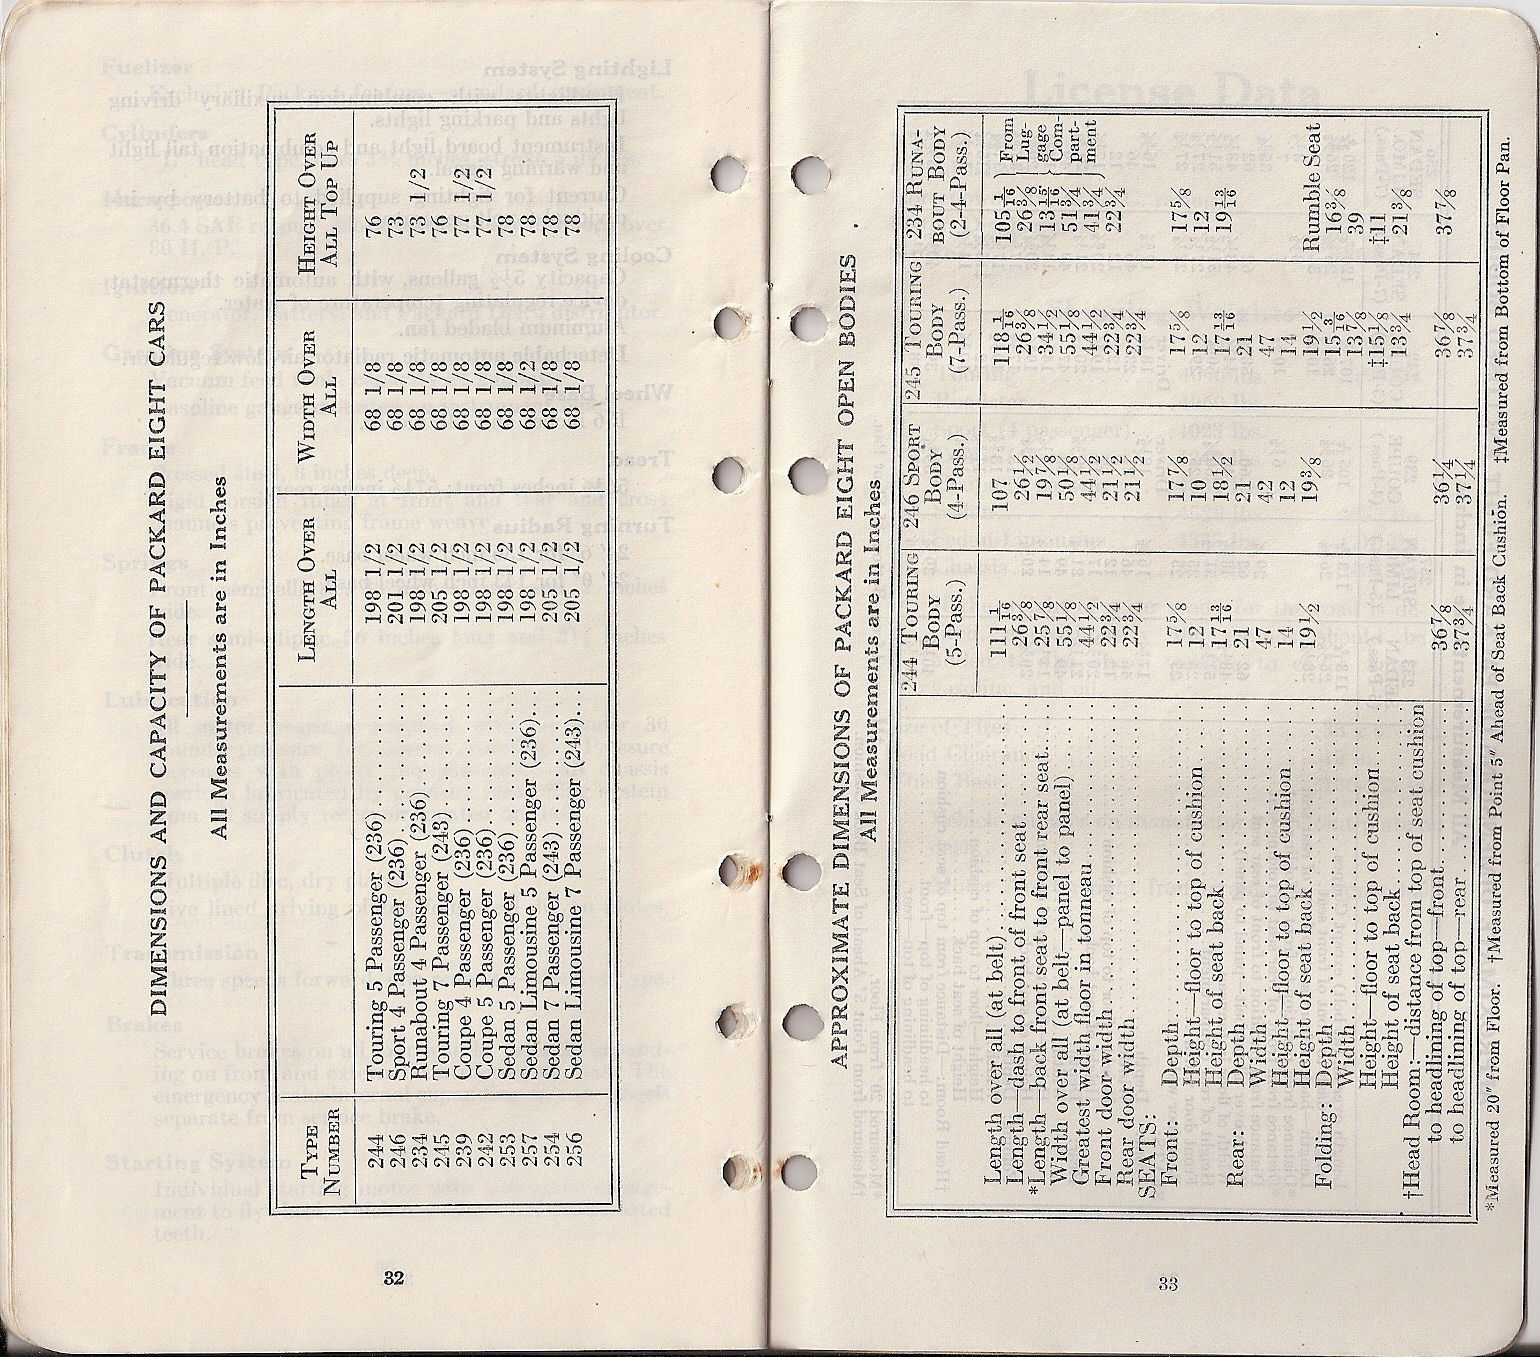 DIMENSIONS AND CAPACITY OF PACKARD EIGHT CARS
All Measurements are in Inches
TYPE NUMBER LENGTH OVER ALL WIDTH OVER ALL HEIGHT OVER ALL TOP UP
244 Touring 5 Passenger (236) 198 1/2 68 1/8 76
246 Sport 4 Passenger (236) 201 1/2 68 1/8 73
234 Runabout 4 Passenger (236) 198 1/2 68 1/8 73 1/2
245 Touring 7 Passenger (243) 205 1/2 68 1/8 76
239 Coupe 4 Passenger (236) 198 1/2 68 1/8 77 1/2
242 Coupe 5 Passenger (236) 198 1/2 68 1/8 77 1/2
253 Sedan 5 Passenger (236) 198 1/2 68 1/8 78
257 Sedan Limousine 5 Passenger (236) 198 1/2 68 1/2 78
254 Sedan 7 Passenger (243) 205 1/2 68 1/8 78
256 Sedan Limousine 7 Passenger (243) 205 1/2 68 1/8 78
32
APPROXIMATE DIMENSIONS OF PACKARD EIGHT OPEN BODIES
All Measurements are in Inches
244 TOURING 246 SPORT 245 TOURING 234 RUNA-
BODY BODY BODY BOUT BODY
(5-Pass.) (4-Pass.) (7-Pass.) (2-4-Pass.)
Length over all (at belt) 111 1/16 107 118 1/16 105 1/16 From
Length—dash to front of front seat 26 3/8 26 1/2 26 3/8 26 3/8 Lug-
*Length—back front seat to front rear seat 25 7/8 19 7/8 34 1/2 13 15/16 gage
Width over all (at belt—panel to panel) 55 1/8 50 1/8 55 1/8 51 3/4 Com-
Greatest width floor in tonneau 44 1/2 44 1/2 44 1/2 41 3/4 part-
Front door width 22 3/4 21 1/2 22 3/4 22 3/4 ment
Rear door width 22 3/4 21 1/2 22 3/4
SEATS:
Front: Depth 17 5/8 17 7/8 17 5/8 17 5/8
Height—floor to top of cushion 12 10 3/8 12 12
Height of seat back 17 13/16 18 1/2 17 13/16 19 13/16
Rear: Depth 21 21 21
Width 47 42 47
Height—floor to top of cushion 14 12 14
Height of seat back 19 1/2 19 3/8 19 1/2 Rumble Seat
Folding: Depth 15 3/16 16 3/8
Width 13 7/8 39
Height—floor to top of cushion ‡15 1/8 ‡11
Height of seat back 13 3/4 21 3/8
†Head Room:—distance from top of seat cushion
to headlining of top—front 36 7/8 36 1/4 36 7/8 37 7/8
to headlining of top—rear 37 3/4 37 1/4 37 3/4
*Measured 20" from Floor. †Measured from Point 5" Ahead of Seat Back Cushion. ‡Measured from Bottom of Floor Pan.
33